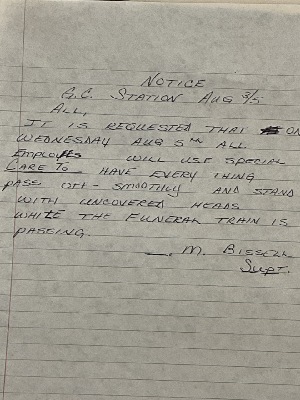 NOTICE
G.C. STATION AUG 3/5
ALL,
IT IS REQUESTED THAT ON
WEDNESDAY AUG 5TH ALL
EMPLOYES WILL USE SPECIAL
CARE TO HAVE EVERY THING
PASS OFF - SMOOTHLY AND STAND
WITH UNCOVERED HEADS
WHITE THE FUNERAL TRAIN IS
PASSING.
M. BISSELL
SUPT.